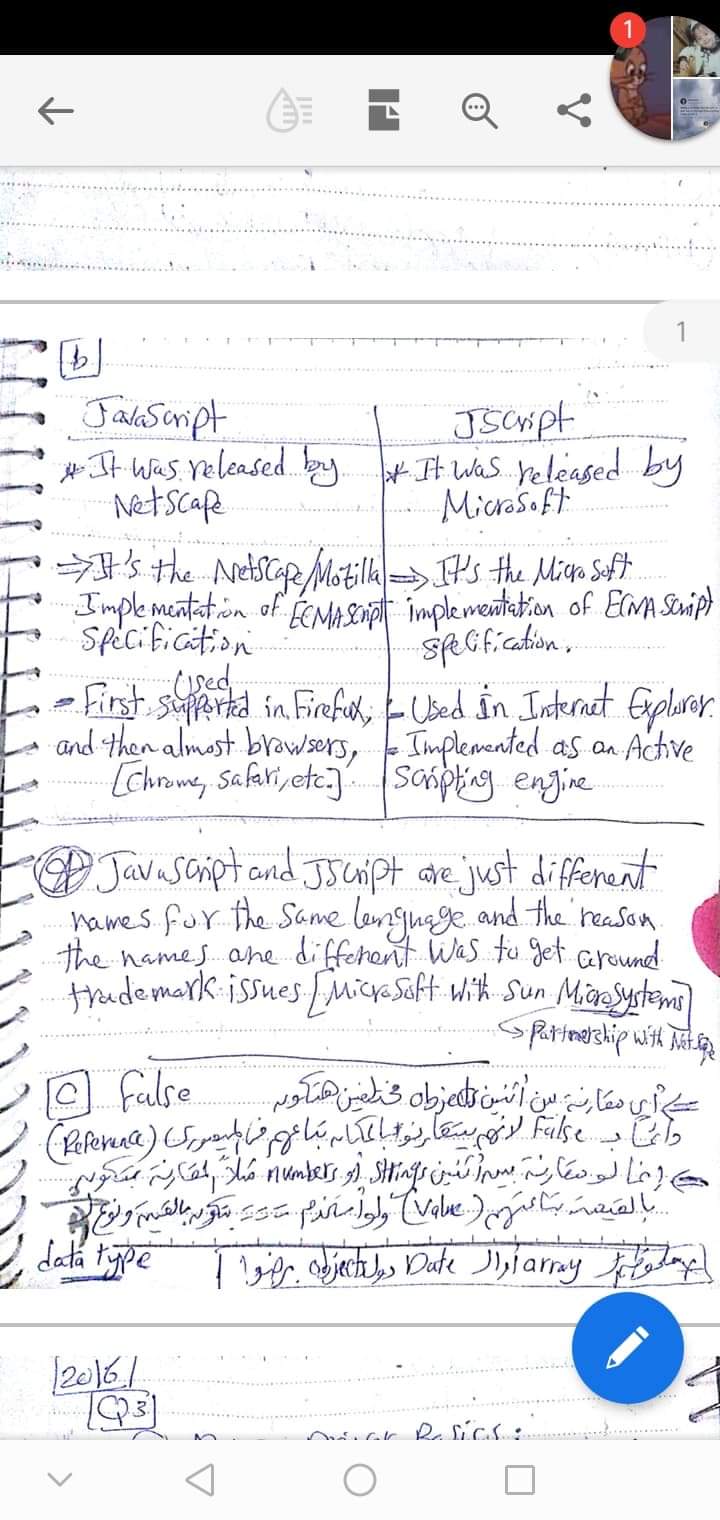 1
1
b
JavaScript
JScript
* It was released by
NetScape
* It was released by
Microsoft
⇒ It's the NetScape/Mozilla
Implementation of ECMAScript
Specification
⇒ It's the Microsoft
implementation of ECMAScript
specification.
Used
- First supported in Firefox,
and then almost browsers,
[Chrome, Safari, etc.]
- Used in Internet Explorer.
- Implemented as an Active
scripting engine
JavaScript and JScript are just different
names for the same language and the reason
the names are different was to get around
trademark issues [Microsoft with Sun Microsystems]
Partnership with
C False
أي مقارنة بين أتنين objects مختلفين هتكون
دائماً بـ False لأنهم بيتقارنوا بالمكان بتاعهم في (Reference)
لو مقارنة بين أتنين strings أو numbers مثلاً المقارنة بتكون
بالقيمة بتاعتهم (Value) ولو === بتكون بالقيمة ونوع
data type
ملحوظة array أو الـ Date دول objects برضوا
2016
Q3
Basics: